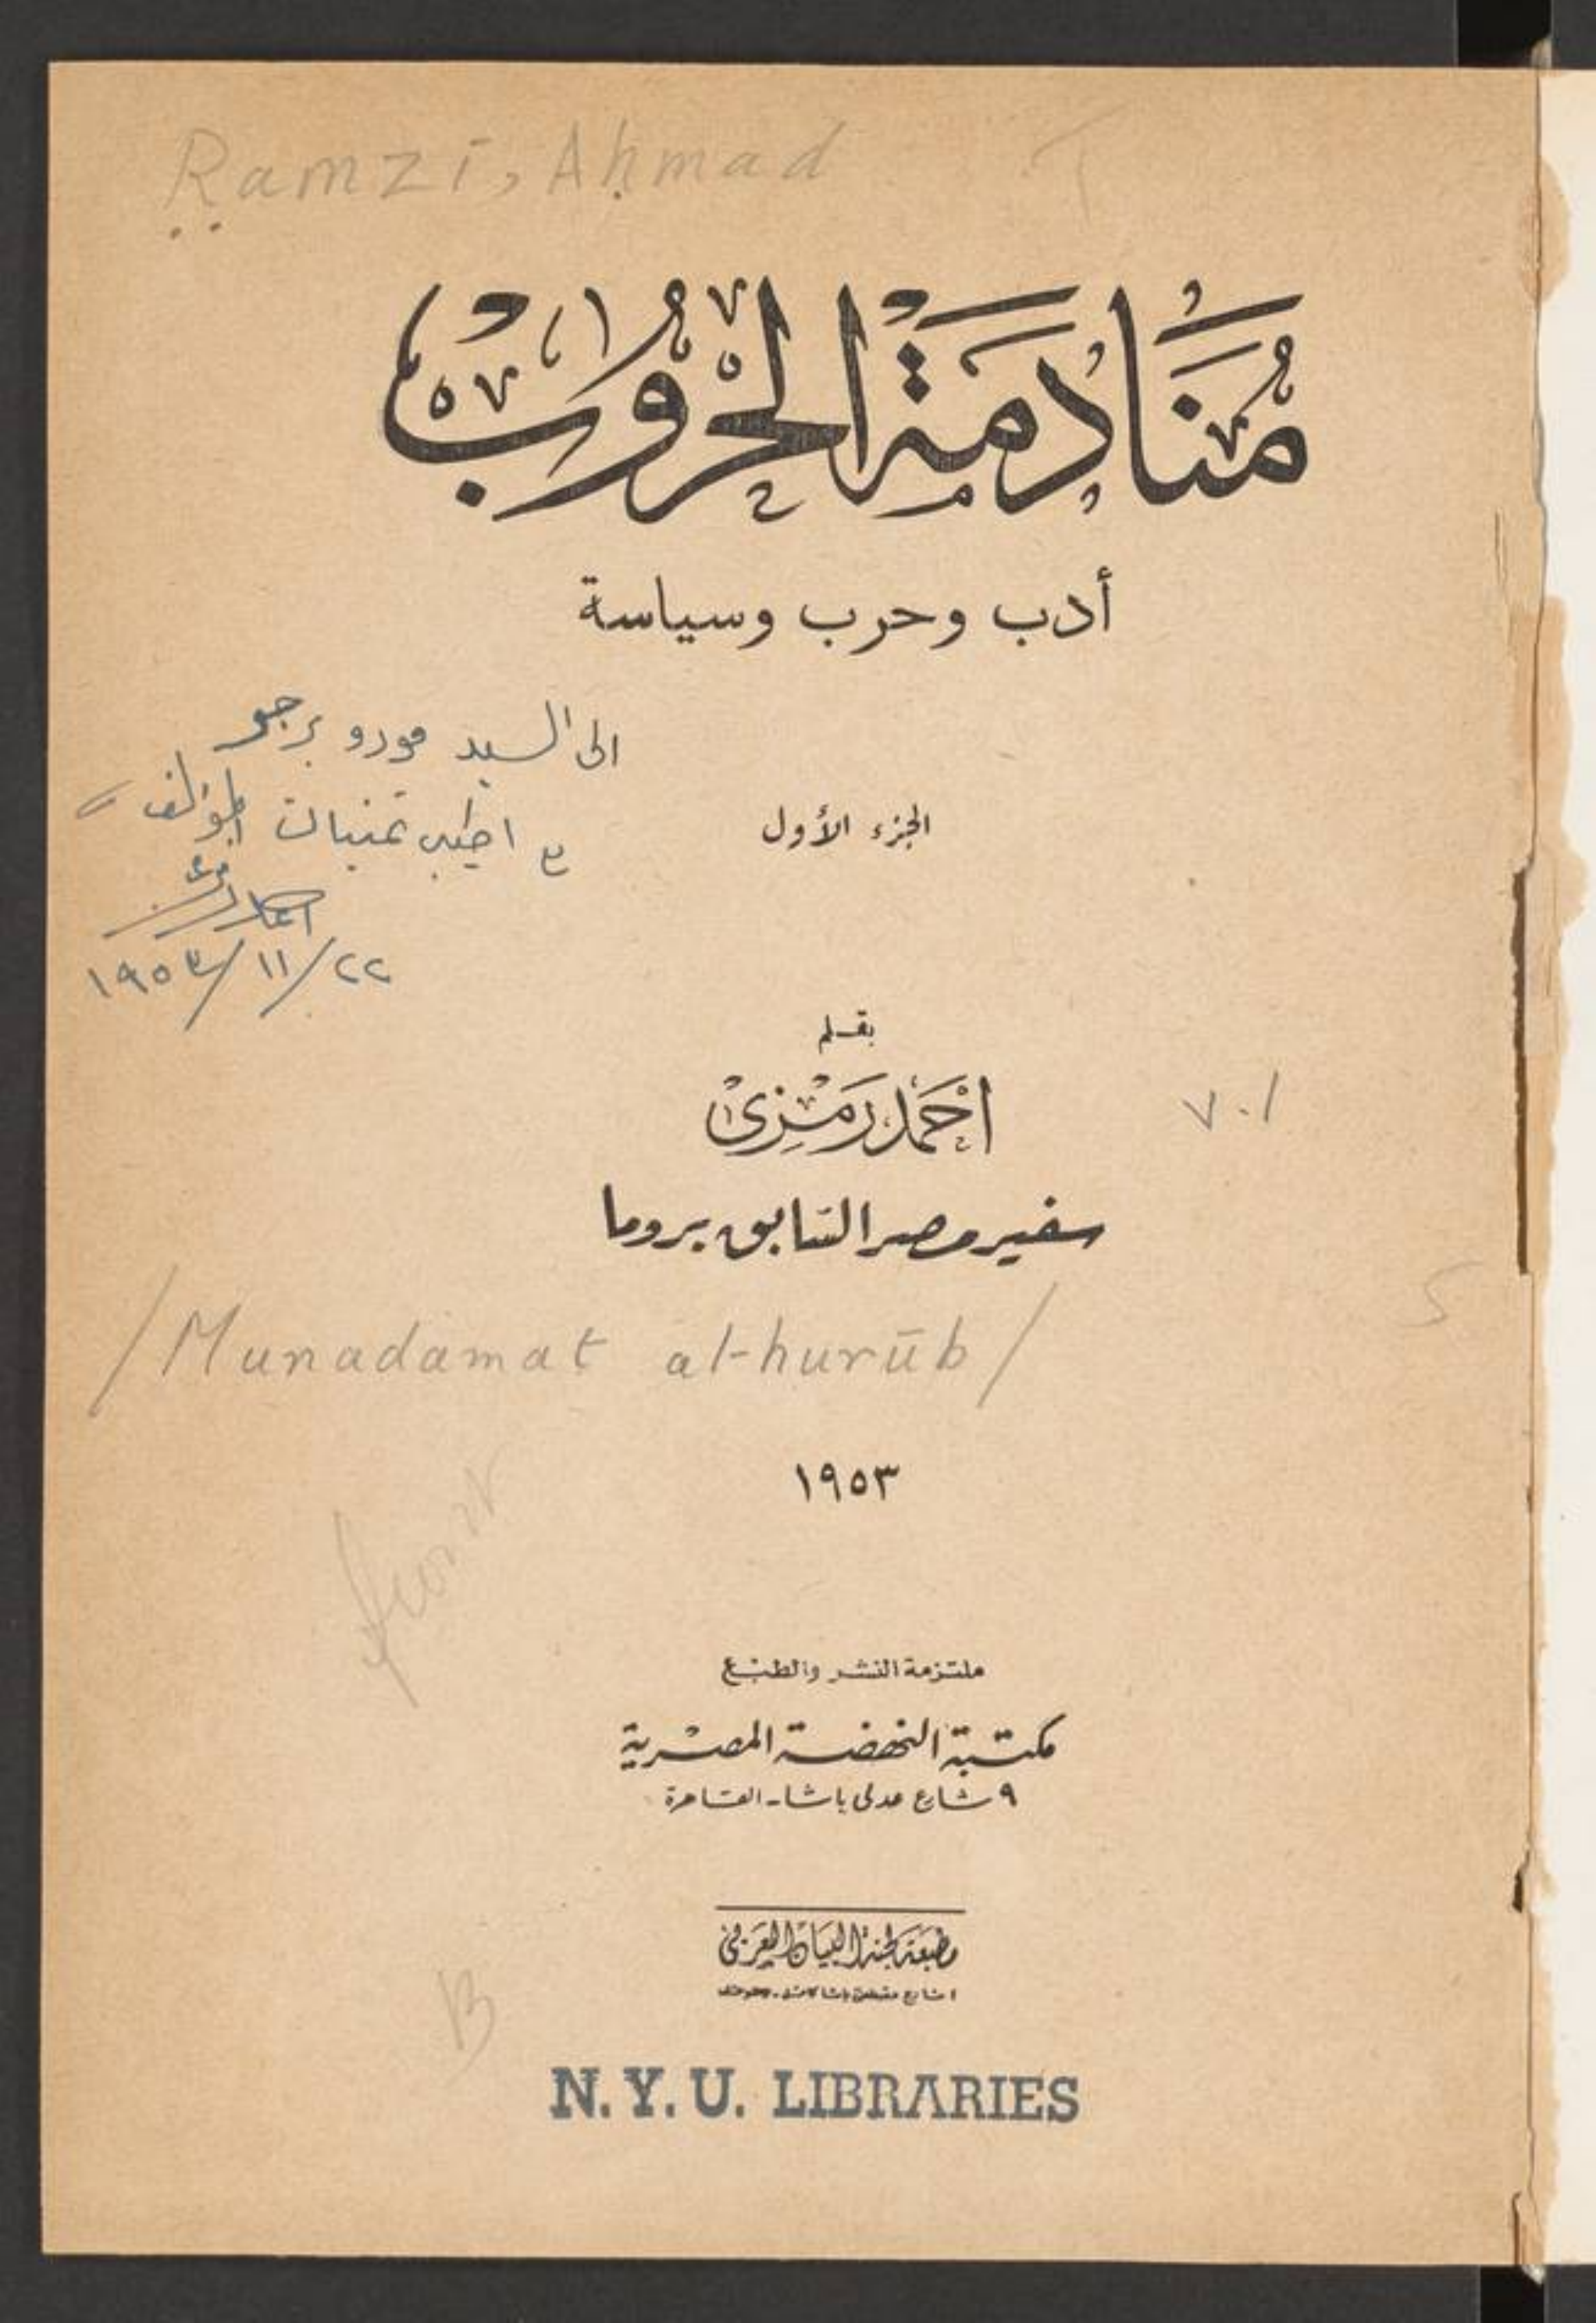 Ramzī, Aḥmad
مُنَادَمَةُ الْحُرُوْبْ
أدب وحرب وسياسة
الى السيد مورو برجر
مع اطيب تمنيات المؤلف
احمد رمزى
٢٢/١١/١٩٥٣
الجزء الأول
بقلم
احمد رمزى
v.1
سفير مصر السابق بروما
/Munadamat al-hurūb/
١٩٥٣
ملتزمة النشر والطبع
مكتبة النهضة المصرية
٩ شارع عدلى باشا - القاهرة
مطبعة لجنة البيان العربي
B
N.Y.U. LIBRARIES